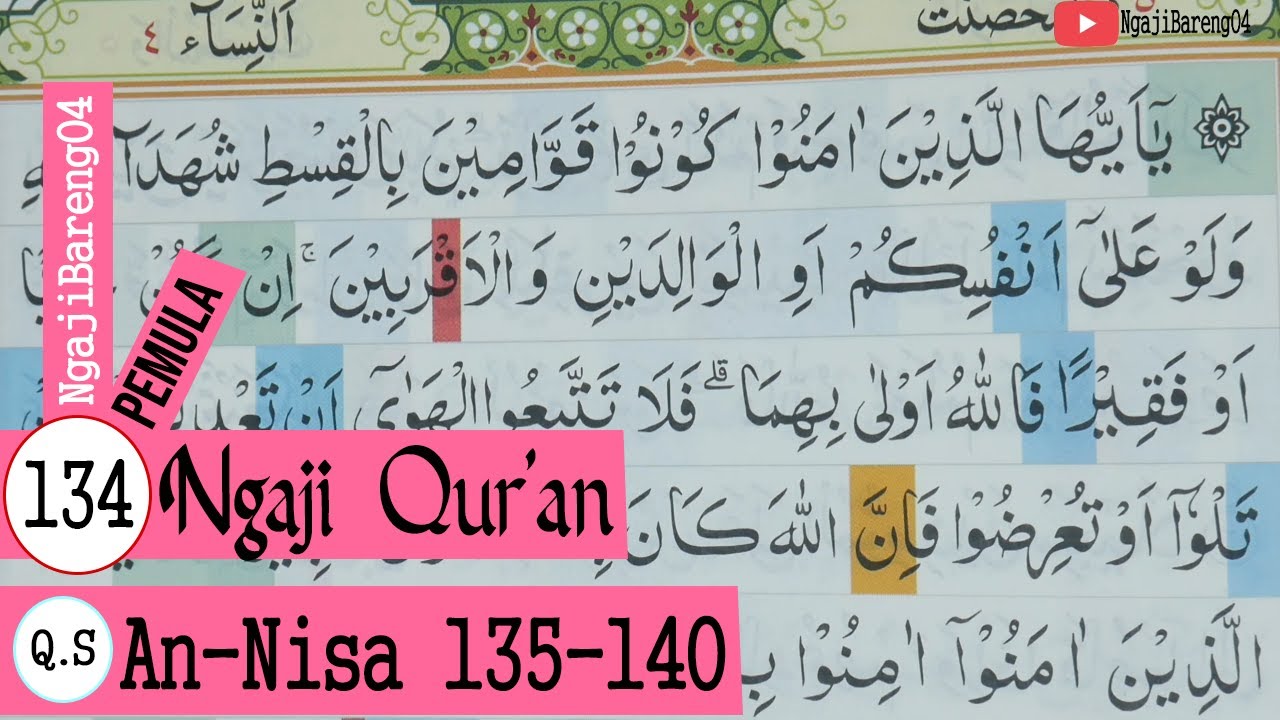 اَلنِّسَاۤء ٤
NgajiBareng04
يٰٓاَيُّهَا الَّذِيْنَ اٰمَنُوْا كُوْنُوْا قَوَّامِيْنَ بِالْقِسْطِ
وَلَوْ عَلٰٓى اَنْفُسِكُمْ اَوِ الْوَالِدَيْنِ وَالْاَقْرَبِيْنَ ۚ اِنْ
اَوْ فَقِيْرًا فَاللّٰهُ اَوْلٰى بِهِمَا ۗ فَلَا تَتَّبِعُوا الْهَوٰٓى اَنْ
تَلْوٗٓا اَوْ تُعْرِضُوْا فَاِنَّ اللّٰهَ كَانَ
الَّذِيْنَ اٰمَنُوْٓا اٰمِنُوْا
NgajiBareng04
PEMULA
134 Ngaji Qur'an
Q.S An-Nisa 135-140